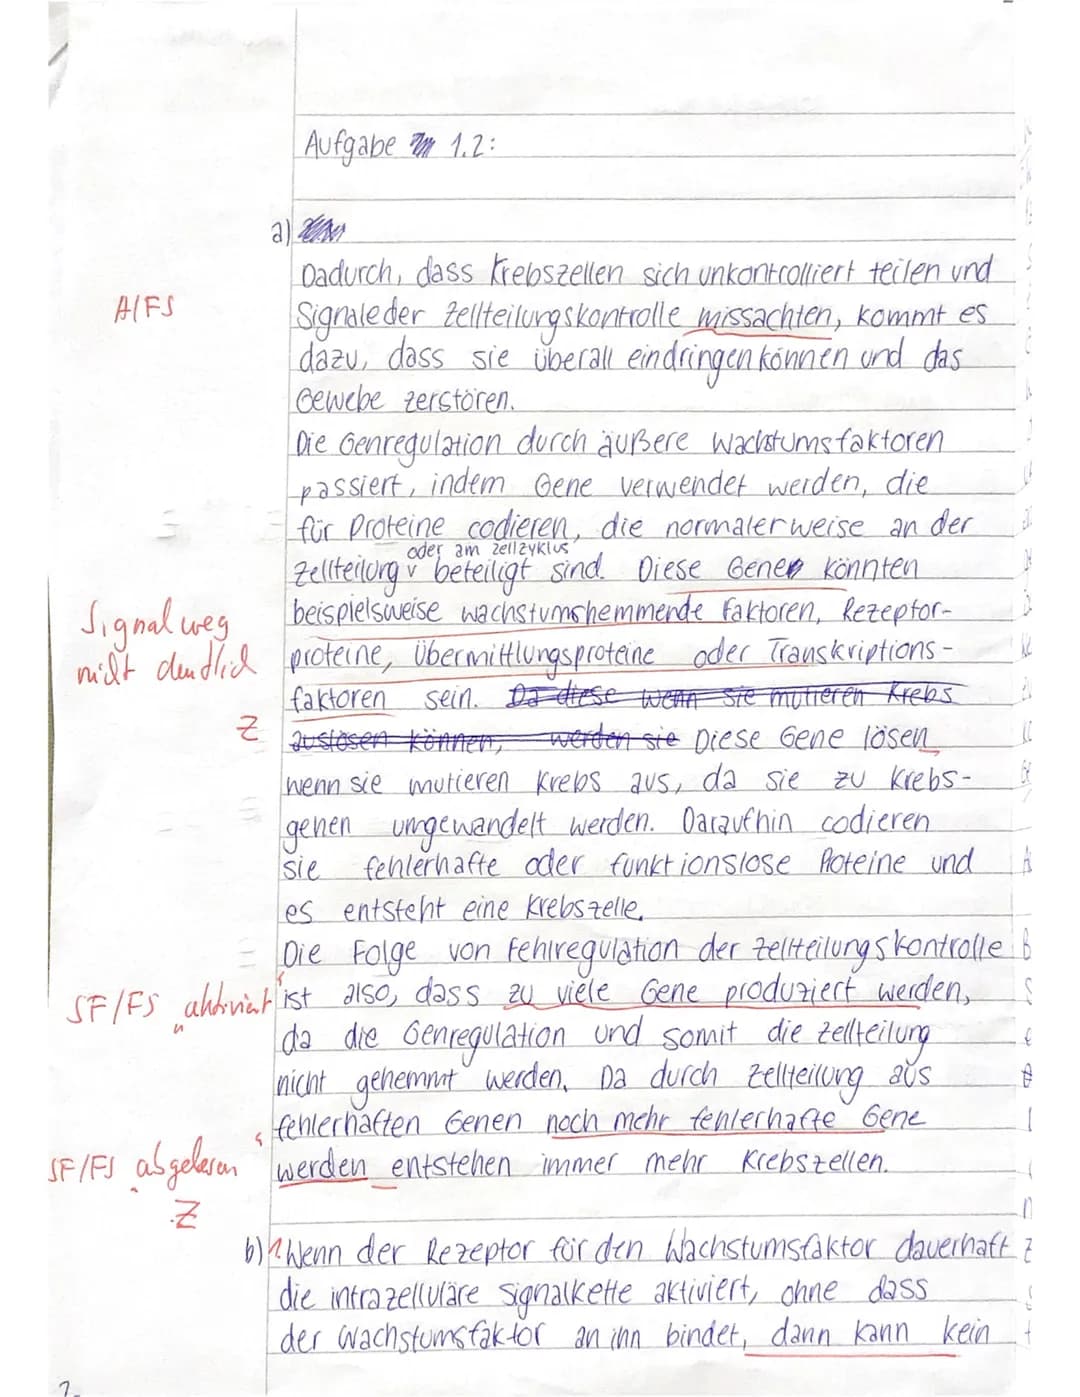 Aufgabe 1.2:
a)
Dadurch, dass Krebszellen sich unkontrolliert teilen und
A/FS
Signale der Zellteilungskontrolle missachten, kommt es
dazu, dass sie überall eindringen können und das
Gewebe zerstören.
Die Genregulation durch äußere Wachstumsfaktoren
passiert, indem Gene verwendet werden, die
für Proteine codieren, die normalerweise an der
oder am Zellzyklus
Zellteilung v beteiligt sind. Diese Gene könnten
beispielsweise wachstumshemmende Faktoren, Rezeptor-
Signalweg
nicht deutlich
proteine, Übermittlungsproteine oder Transkriptions-
faktoren sein. Da diese wenn sie mutieren Krebs
Z
auslösen können, werden sie Diese Gene lösen
wenn sie mutieren Krebs aus, da sie zu Krebs-
genen umgewandelt werden. Daraufhin codieren
sie fehlerhafte oder funktionslose Proteine und
es entsteht eine Krebszelle.
Die Folge von Fehlregulation der Zellteilungskontrolle
SF/FS aktiviert
ist also, dass zu viele Gene produziert werden,
da die Genregulation und somit die Zellteilung
nicht gehemmt werden. Da durch Zellteilung aus
fehlerhaften Genen noch mehr fehlerhafte Gene
SF/FS abgelesen
werden entstehen immer mehr Krebszellen.
Z
b) Wenn der Rezeptor für den Wachstumsfaktor dauerhaft
die intrazelluläre Signalkette aktiviert, ohne dass
der Wachstumsfaktor an ihn bindet, dann kann kein